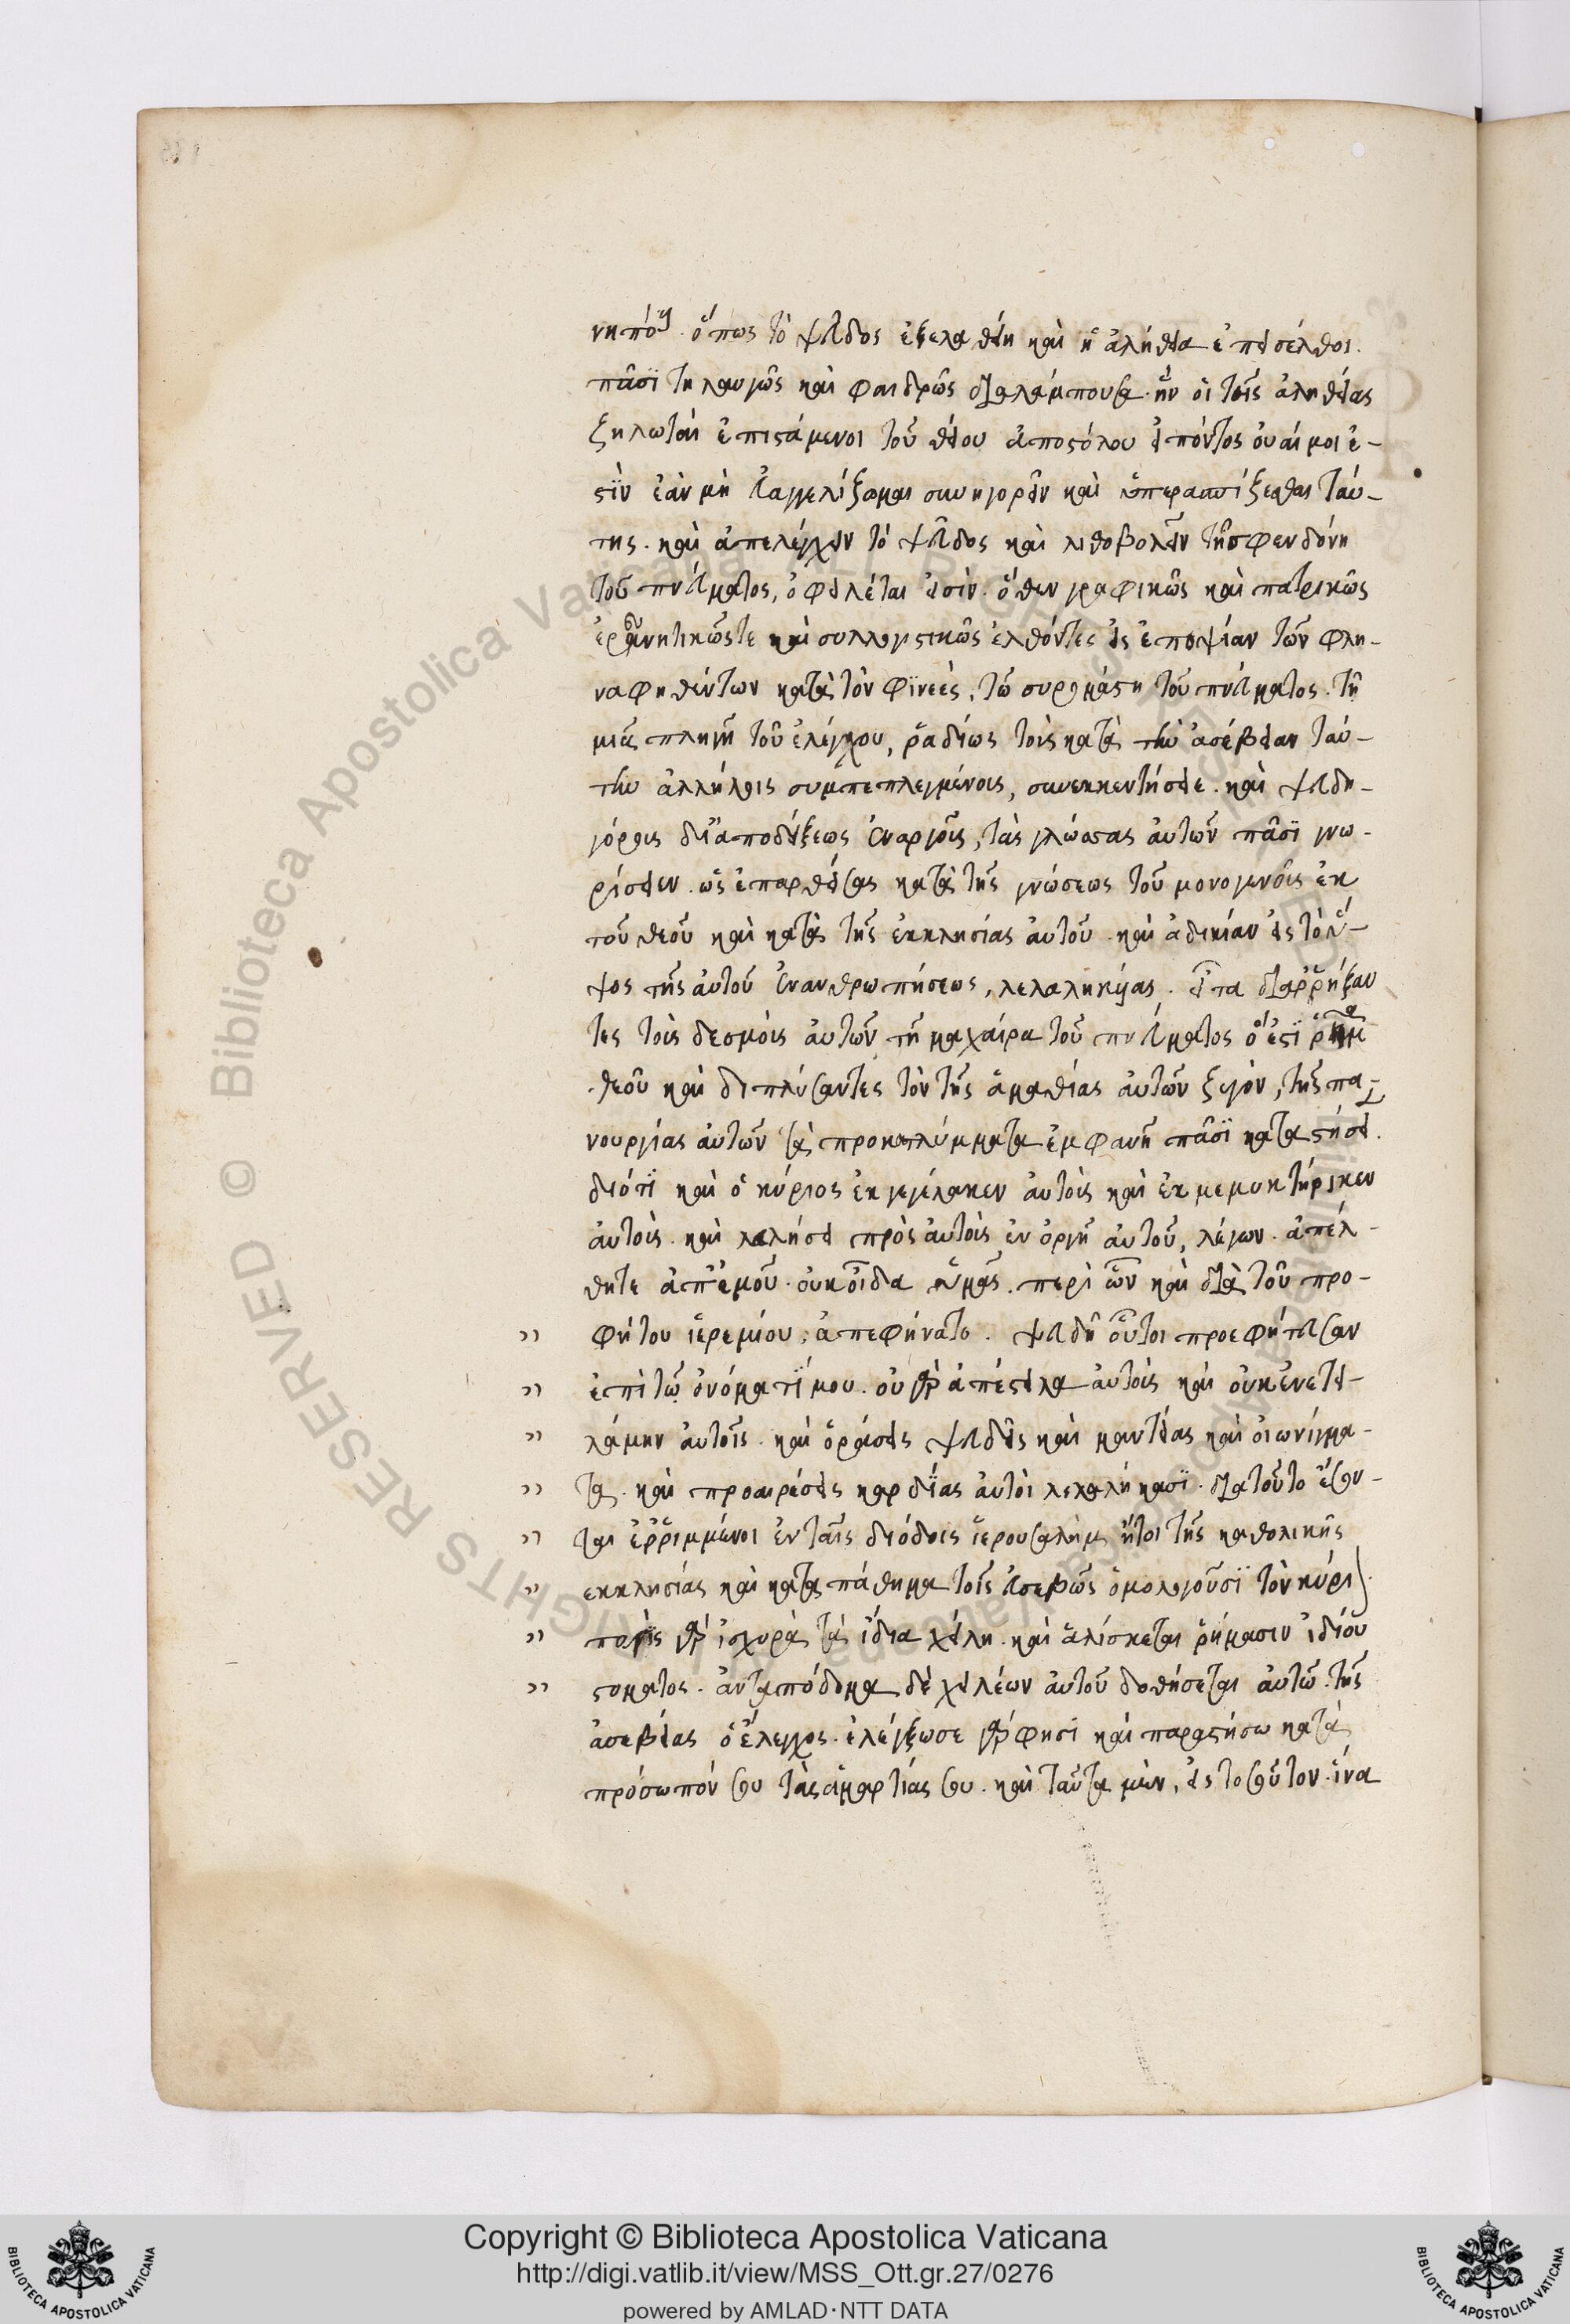 ὅπως τὸ ψεῦδος ἐξελαθείη καὶ ἡ ἀλήθεια ἐπεισέλθοι.
πᾶσϊ τηλαυγῶς καὶ φαιδρῶς διαλάμπουσα. ἣν οἱ τῆς ἀληθείας
ζηλωταὶ ἐπιστάμενοι τοῦ θείου ἀποστόλου εἰπόντος οὐαί μοι ἐ-
στὶν ἐὰν μὴ εὐαγγελίζωμαι συνηγορεῖν καὶ ὑπερασπίζεσθαι ταύ-
της. καὶ ἀπελέγχειν τὸ ψεῦδος καὶ λιθοβολεῖν τῇ σφενδόνῃ
τοῦ πνεύματος, ὀφειλέται εἰσὶν. ὅθεν γραφικῶς καὶ πατρικῶς
ἐρευνητικῶς τε καὶ συλλογιστικῶς ἐλθόντες εἰς ἐποψίαν τῶν φλη-
ναφηθέντων κατὰ τὸν φϊνεὲς, τῷ συρομάστη τοῦ πνεύματος. τῇ
μιᾷ πληγῇ τοῦ ἐλέγχου, ῥαδίως τοὺς κατὰ τὴν ἀσέβειαν ταύ-
την ἀλλήλοις συμπεπλεγμένους, συνεκκεντήσατε. καὶ ψευδη-
γόρους δι' ἀποδείξεως ἐναργοῦς, τὰς γλώσσας αὐτῶν πᾶσϊ γνω-
ρίσειεν. ὡς ἐπαρθείσας κατὰ τῆς γνώσεως τοῦ μονογενοῦς ἐκ
τοῦ θεοῦ καὶ κατὰ τῆς ἐκκλησίας αὐτοῦ. καὶ ἀδικίαν εἰς τὸ ὕ-
ψος τῆς αὐτοῦ ἐνανθρωπήσεως, λελαληκυίας. εἶτα διαῤῥήξαν
τες τοὺς δεσμοὺς αὐτῶν τῇ μαχαίρα τοῦ πνεύματος ὅ ἐστϊ ῥῆμα
θεοῦ καὶ διπλύσαντες τὸν τῆς ἀμαθίας αὐτῶν ζυγὸν, τῆς πα-
νουργίας αὐτῶν τὰ προκαλύμματα ἐμφανῆ πᾶσϊ καταστήσει.
διότϊ καὶ ὁ κύριος ἐκγεγέλακεν αὐτοὺς καὶ ἐκμεμυκτήρικεν
αὐτοὺς. καὶ λαλήσει πρὸς αὐτοὺς ἐν ὀργῇ αὐτοῦ, λέγων. ἀπέλ-
θητε ἀπ' ἐμοῦ. οὐκ οἶδα ὑμᾶς. περὶ ὧν καὶ διὰ τοῦ προ-
φήτου ἱερεμίου, ἀπεφήνατο. ψευδῆ οὗτοι προεφήτευσαν
ἐπὶ τῷ ὀνόματϊ μου. οὐ γὰρ ἀπέστειλα αὐτοὺς καὶ οὐκ ἐνετει-
λάμην αὐτοῖς. καὶ ὁράσεις ψευδεῖς καὶ μαντείας καὶ οἰωνίσμα-
τα. καὶ προαιρέσεις καρδίας αὐτοὶ λελαλήκασϊ. διατοῦτο ἔσον-
ται ἐῤῥιμμένοι ἐν ταῖς διόδοις ἱερουσαλὴμ ἤτοι τῆς καθολικῆς
εκκλησίας καὶ καταπάθημα τοῖς εὐσεβῶς ὁμολογοῦσϊ τὸν κύρι
παγὶς γὰρ ἰσχυρὰ τὰ ἴδια χείλη. καὶ ἁλίσκεται ῥήμασιν ἰδίου
στοματος. ἀνταπόδομα δὲ χειλέων αὐτοῦ δοθήσεται αὐτῷ. τῆς
ἀσεβείας ὁ ἔλεγχος. ἐλέγξω σε γάρ φησϊ καὶ παραστήσω κατὰ
πρόσωπόν σου τὰς ἁμαρτίας σου. καὶ ταῦτα μὲν, εἰς τοσοῦτον. ἵνα
Copyright © Biblioteca Apostolica Vaticana
http://digi.vatlib.it/view/MSS_Ott.gr.27/0276
powered by AMLAD·NTT DATA